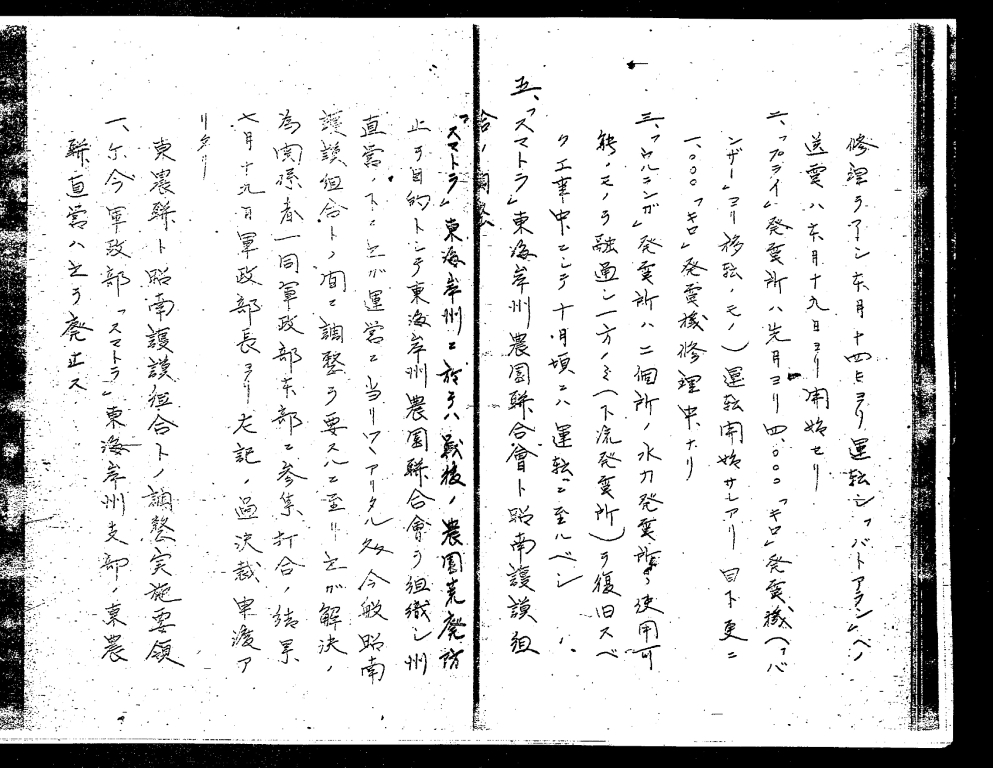 修理ヲアシ本月十四日ヨリ運転シ「バトアラン」ヘノ
送電ハ本月十九日ヨリ開始セリ
二、「プライ」発電所ハ先月ヨリ四、〇〇〇「キロ」発電機(「バ
ンザー」ヨリ移転ノモノ)運転開始サレアリ 目下更ニ
一、〇〇〇「キロ」発電機修理中ナリ
三、「ウルニンガ」発電所ハ二個所ノ水力発電所ヲ使用可
能ノモノヲ融通シ一方ノミ(下流発電所)ヲ復旧スベ
ク工事中ニシテ十月頃ニハ運転ニ至ルベシ
五、「スマトラ」東海岸州農園聯合會ト昭南護謨組
合ノ調整
「スマトラ」東海岸州ニ於テハ戦後ノ農園荒廃防
止ヲ目的トシテ東海岸州農園聯合會ヲ組織シ州
直営ノ下ニ之ガ運営ニ当リツツアリタル処今般昭南
護謨組合トノ間ニ調整ヲ要スルニ至リ之ガ解決ノ
為関係者一同軍政部本部ニ参集打合ノ結果
七月十九日軍政部長ヨリ左記ノ通決裁申渡ア
リタリ
東農聯ト昭南護謨組合トノ調整実施要領
一、尓今軍政部「スマトラ」東海岸州支部ノ東農
聯直営ハ之ヲ廃止ス